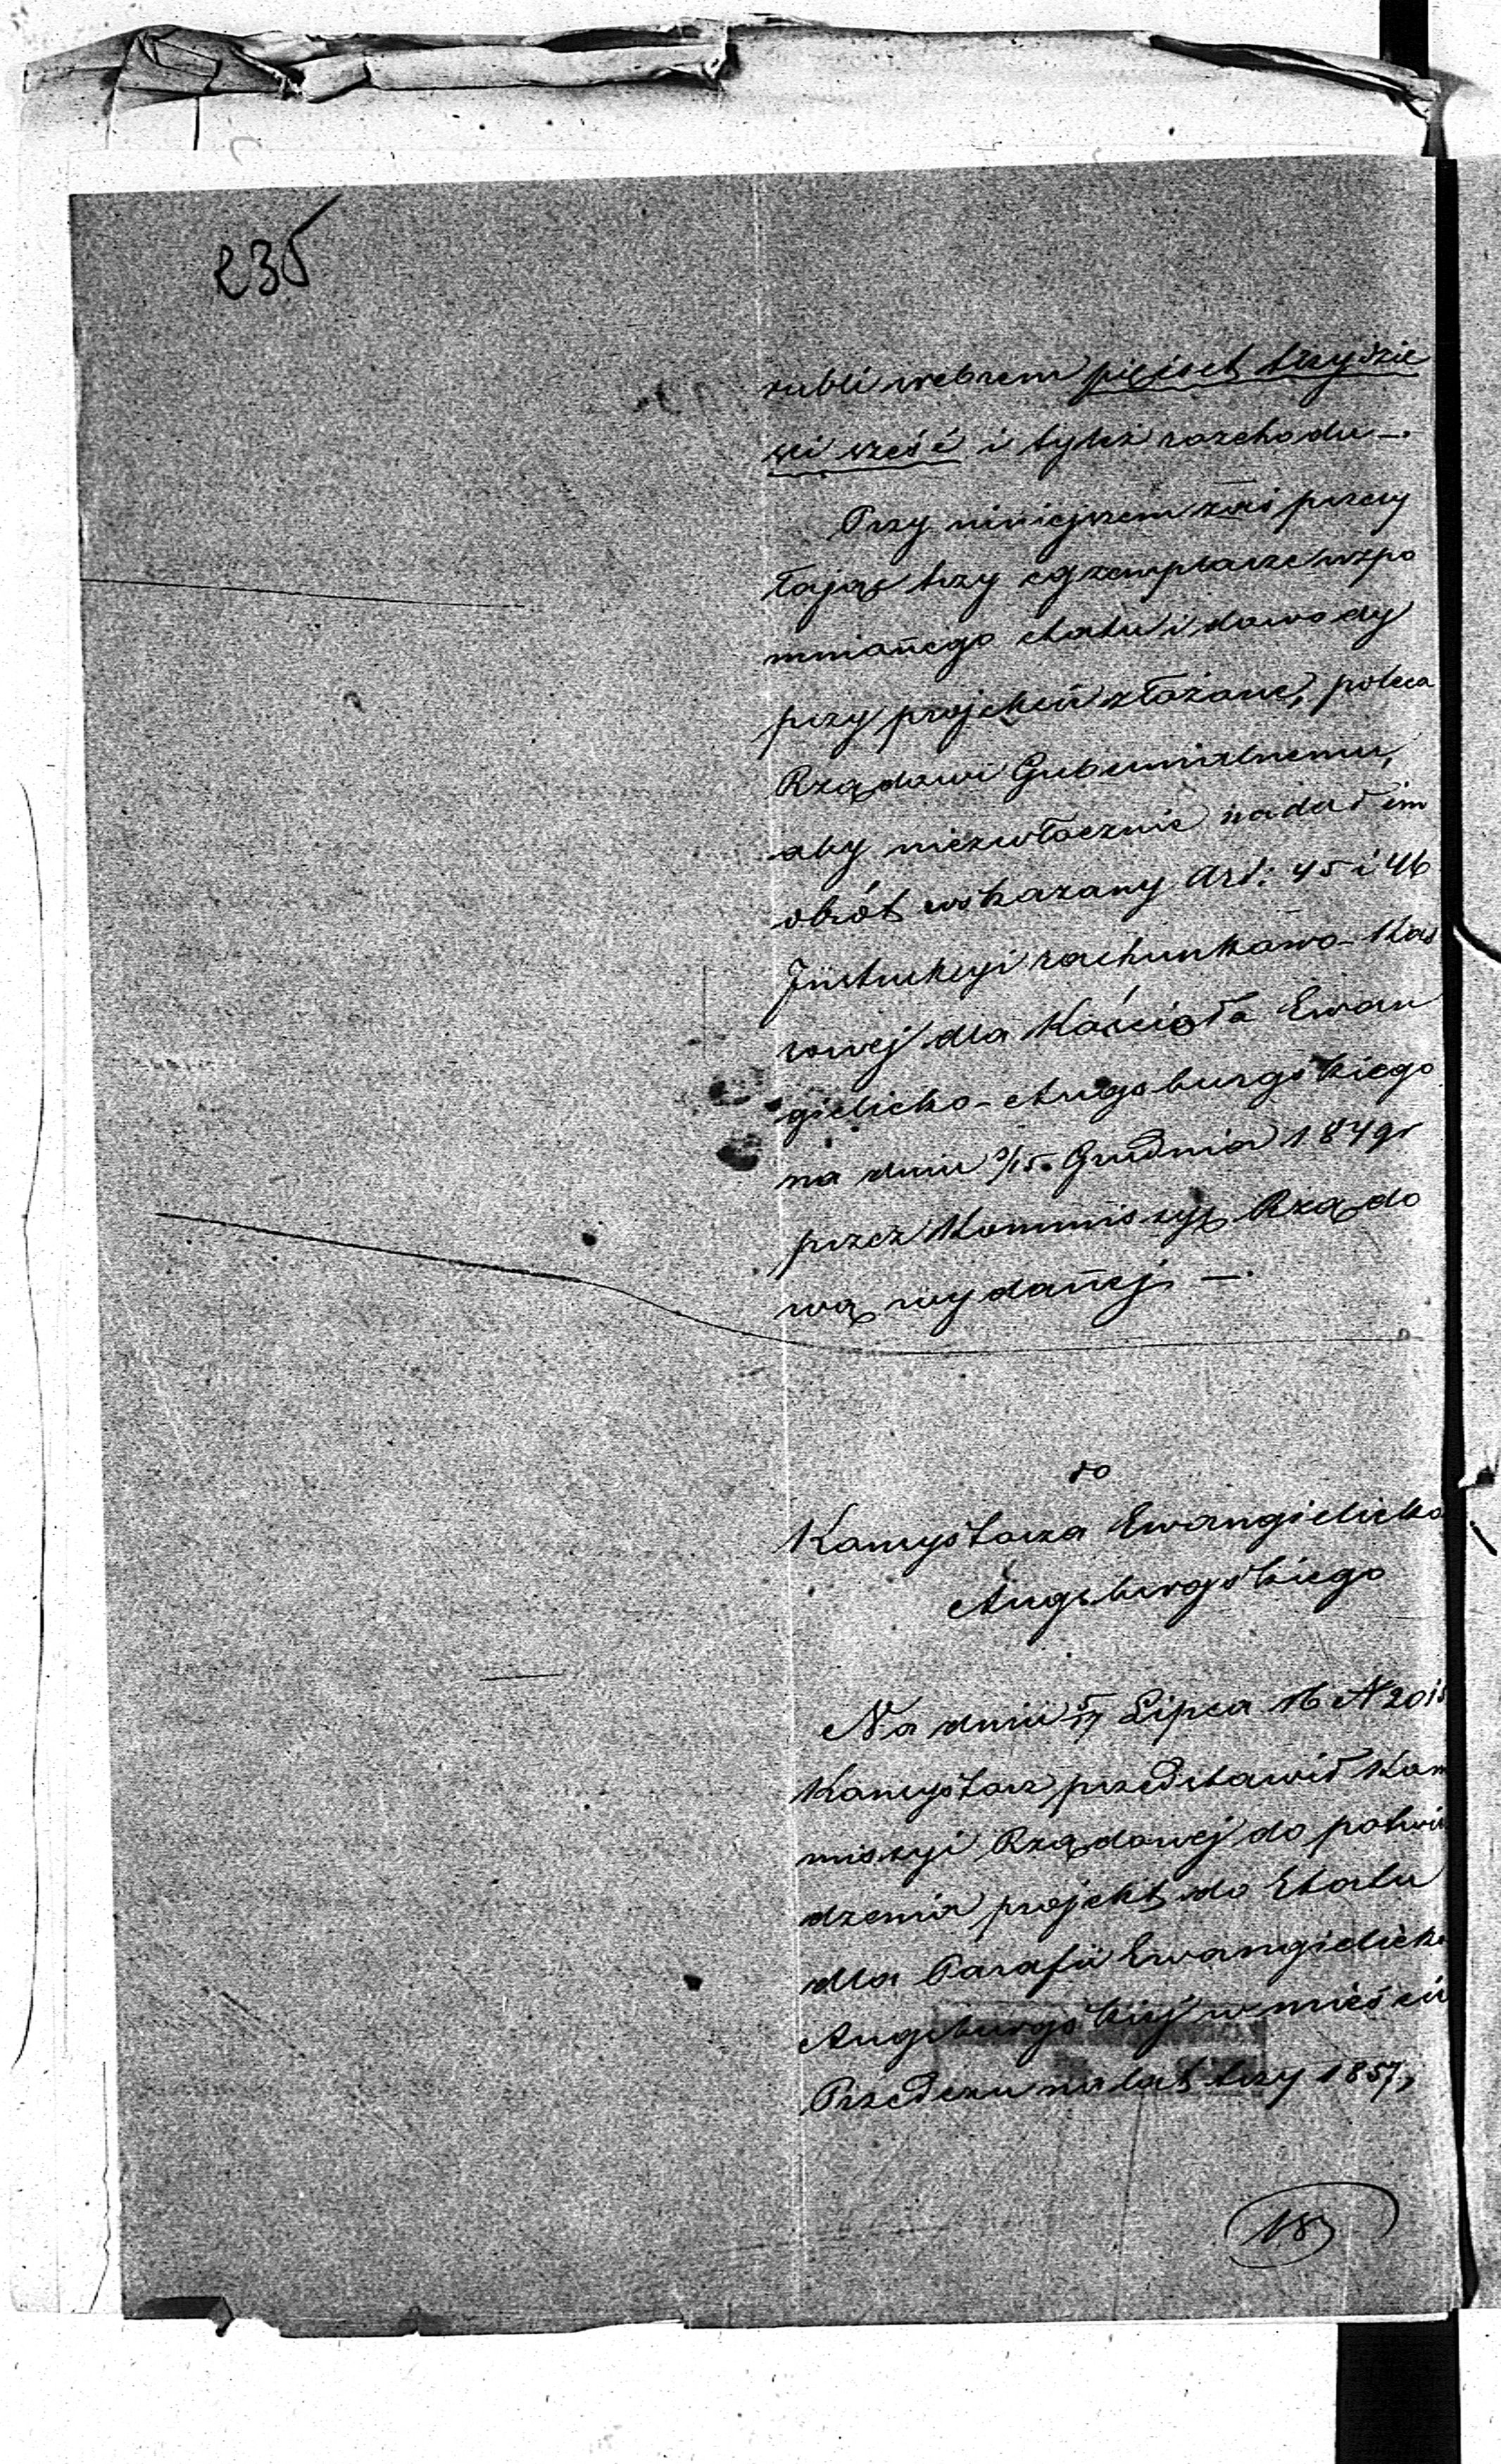 235
rubli srebrem pięciset trzydzie
ści sześć i tyleż rozchodu —.
Przy niniejszem zaś przesy
łając trzy egzemplarze wspo
mnianego etatu i dowody
przy projekcie złożone, poleca
Rządowi Gubernialnemu,
aby niezwłocznie nadał im
obrót wskazany Art: 45 i 46
Instrukcyi rachunkowo-Kas
sowej dla Kościoła Ewan
gielicko-Augsburgskiego
na dniu 3/15. Grudnia 1849r
przez Kommissyę Rządo
wą wydanej —.
do
Konsystorza Ewangielicko
Augsburgskiego
Na dniu 5/17 Lipca rb N 2015
Konsystorz przedstawił Kom
missyi Rządowej do potwier
dzenia projekt do Etatu
dla Parafii Ewangielicko
Augsburgskiej w mieście
Przedczu na lat trzy 1857,
183